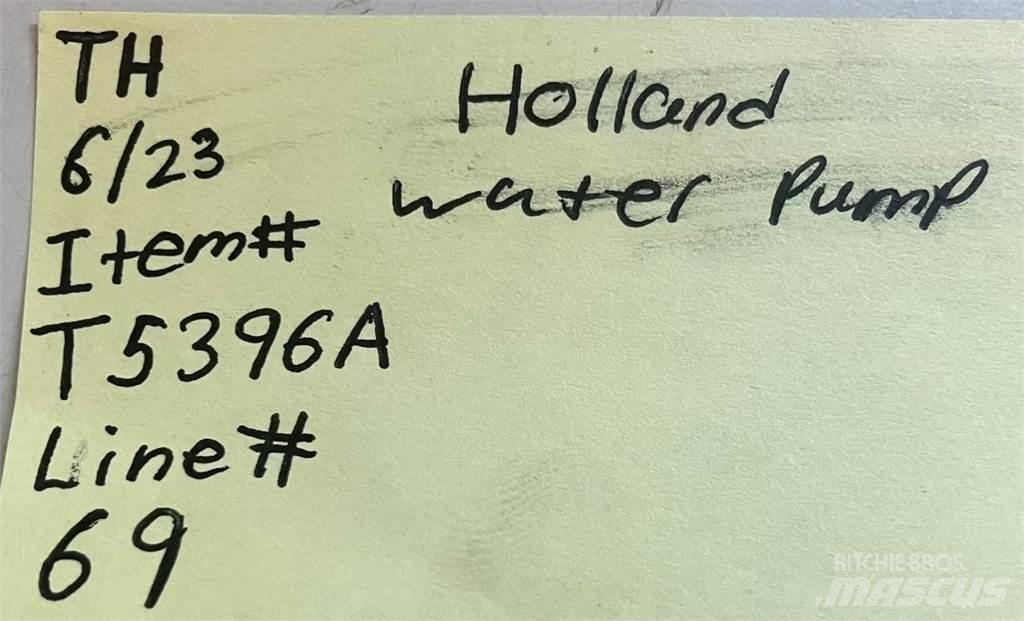 TH
6/23
Item#
T5396A
Line#
69
Holland
water Pump
RITCHIE BROS.
MASCUS